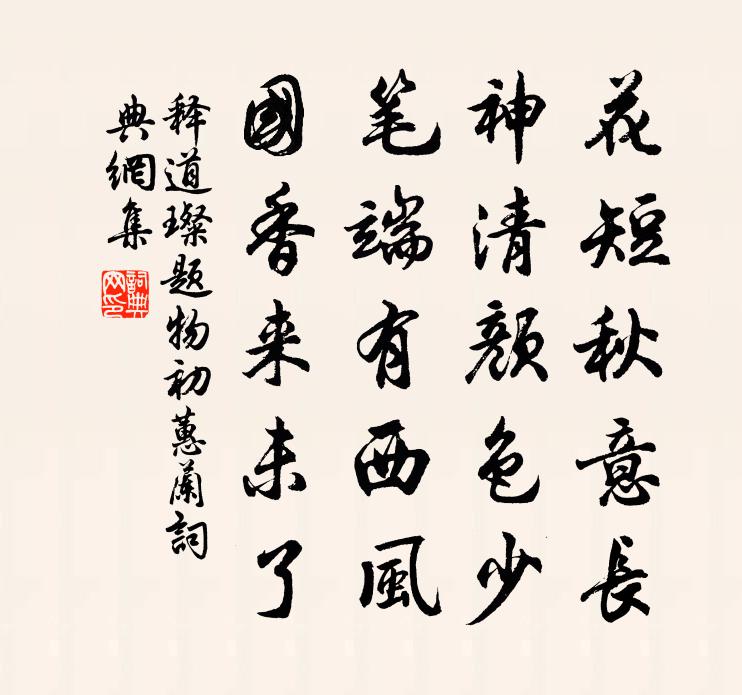 花短秋意長
神清颜色少
笔端有西風
國香来未了
释道璨题物初蕙蘭詞
典網集
詞典
网印